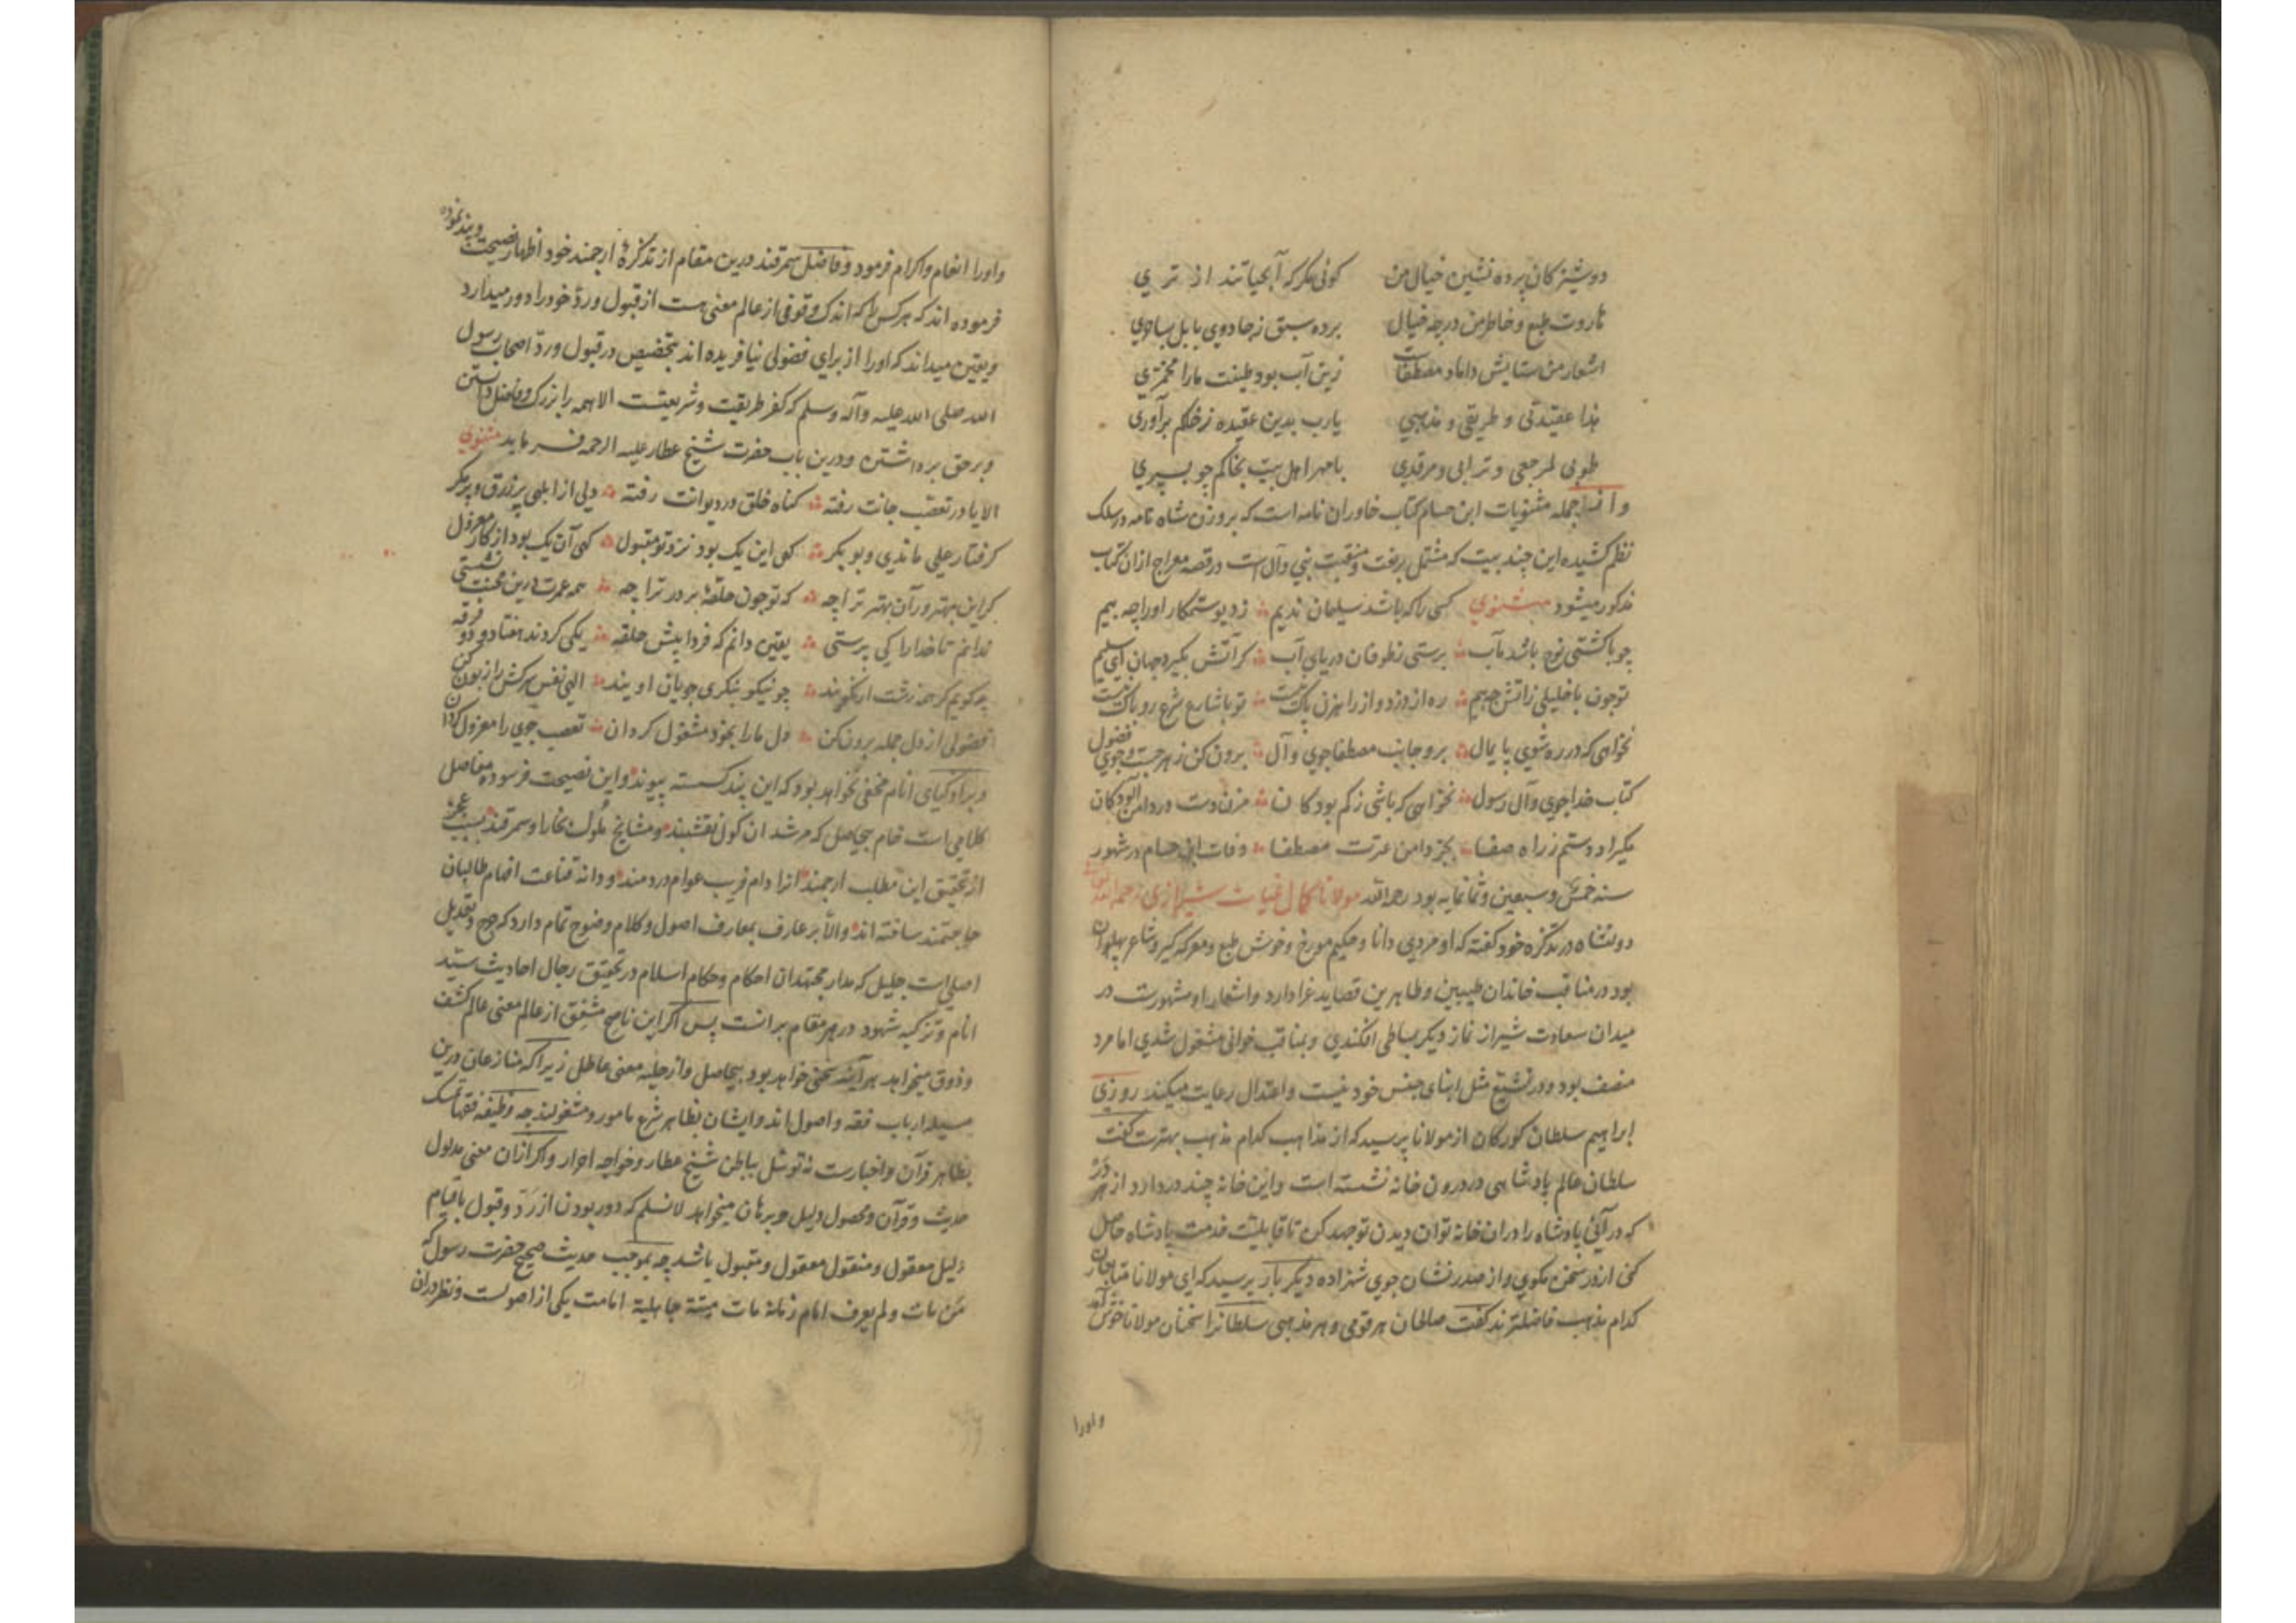 دوشیزکان پرده نشین خیال من کوئی مکر که آبحیاتند از تری
هاروت طبع و خاطر من در چه خیال برده سبق ز جادوی بابل بساحری
اشعار من ستایش داماد مصطفاست زین آب بود طینت مارا مخمری
هذا عقیدتی و طریقی و مذهبی یارب بدین عقیده ز خاکم برآوری
طوبی لمرجعی و ترابی و مرقدی با مهر اهل بیت بخاکم چو بسپری
و از جمله مثنویات ابن حسام کتاب خاوران نامه است که بر وزن شاه نامه در سلک
نظم کشیده این چند بیت که مشتمل بر نعت و منقبت نبی و آل است در قصه معراج ازان کتاب
مذکور میشود مثنوی کسی را که باشد سلیمان ندیم ز دیو ستمکار اورا چه بیم
چو با کشتی نوح باشد مآب برستی ز طوفان دریای آب کر آتش بکیرد جهان ای سلیم
تو چون با خلیلی ز آتش چه بیم ره از دزد و از راهزن پاک نیست تو با شارع شرع رو باک نیست
نخواهی که در ره شوی پایمال برو جانب مصطفا جوی و آل برون کن ز هر جست و جوی فضول
کتاب خدا جوی و آل رسول نخواهی که باشی ز کم بودکان مزن دست در دامن آلودکان
مکیراد دستم ز راه صفا بجز دامن عترت مصطفا وفات ابن حسام در شهور
سنه خمس و سبعین و ثمانمایه بود رحمه الله مولانا کمال غیاث شیرازی رحمه الله
دولتشاه در تذکره خود کفته که او مردی دانا و حکیم مورخ و خوش طبع و معرکه کیر و شاعر پهلوان
بود در مناقب خاندان طیبین و طاهرین قصاید غرا دارد و اشعار او مشهورست در
میدان سعادت شیراز نماز دیکر بساطی افکندی و بمناقب خوانی مشغول شدی اما مرد
منصف بود و در تشیع مثل ابنای جنس خود نیست و اعتدال رعایت میکند روزی
ابراهیم سلطان کورکان از مولانا پرسید که از مذاهب کدام مذهب بهترست کفت
سلطان عالم پادشاهی در درون خانه نشسته است و این خانه چند در دارد از هر در
که در آئی پادشاه را دران خانه توان دیدن تو جهد کن تا قابلیت خدمت پادشاه حاصل
کنی از در سخن مکوی و از صدر نشان جوی شهزاده دیکر بار پرسید که ای مولانا متابعان
کدام مذهب فاضلترند کفت صالحان هر قومی و هر مذهبی سلطانرا سخنان مولانا خوش آمد
و اورا
و اورا انعام و اکرام فرمود و فاضل سمرقند درین مقام از تذکرهٔ ارجمند خود اظهار نصیحت و پند نموده
فرموده اند که هر کس را که اندک وقوفی از عالم معنی هست از قبول و رد خود را دور میدارد
و یقین میداند که اورا از برای فضولی نیافریده اند بتخصیص در قبول و رد اصحاب رسول
الله صلی الله علیه و آله و سلم که کفر طریقت و شریعتست الا همه را بزرک و فاضل دانستن
و بر حق برداشتن و درین باب حضرت شیخ عطار علیه الرحمه فرماید مثنوی
الا یا در تعصب جانت رفته کناه خلق در دیوانت رفته ولی از ابلهی پر زرق و پر مکر
کرفتار علی ماندی و بوبکر کهی این یک بود نزد تو مقبول کهی آن یک بود از کار معزول
کر این بهتر ور آن بهتر ترا چه که تو چون حلقهٔ بر در ترا چه همه عمرت درین محنت نشستی
ندانم تا خدا را کی پرستی یقین دانم که فردا پیش حلقه یکی کردند هفتاد و دو فرقه
چه کویم کر همه زشت ار نکویند چو نیکو بنکری جویان اویند الهی نفس سرکش را زبون کن
فضولی از دل جمله برون کن دل مارا بخود مشغول کردان تعصب جوی را معزول کردان
و بر اذکیای انام مخفی نخواهد بود که این پند کسسته پیوند و این نصیحت فرسوده مفاصل
کلامی است خام بیحاصل که مرشدان کول نقشبند و مشایخ ملوک بخارا و سمرقند بسبب عجز
از تحقیق این مطلب ارجمند انرا دام فریب عوام دردمند و دانه قناعت افهام طالبان
حاجتمند ساخته اند والا بر عارف بمعارف اصول و کلام وضوح تمام دارد که جرح و تعدیل
اصلی است جلیل که مدار مجتهدان احکام و حکام اسلام در تحقیق رجال احادیث سید
انام و تزکیه شهود در هر مقام برانست پس اکر این ناصح مشفق از عالم معنی عالم کشف
و ذوق میخواهد هر آینه سخنی خواهد بود بیحاصل و از حلیه معنی عاطل زیرا که منازعان درین
مسیله ارباب فقه و اصول اند و ایشان بظاهر شرع مامور و مشغولند چه وظیفه فقها تمسک
بظاهر قرآن و اخبارست نه توسل بباطن شیخ عطار و خواجه احرار و اکر ازان معنی مدلول
حدیث و قرآن و محصول دلیل و برهان میخواهد لانسلم که دور بودن از رد و قبول با قیام
دلیل معقول و منقول معقول و مقبول باشد چه بموجب حدیث صحیح حضرت رسول که
من مات و لم یعرف امام زمانه مات میتة جاهلیة امامت یکی از اصولست و نظر دران